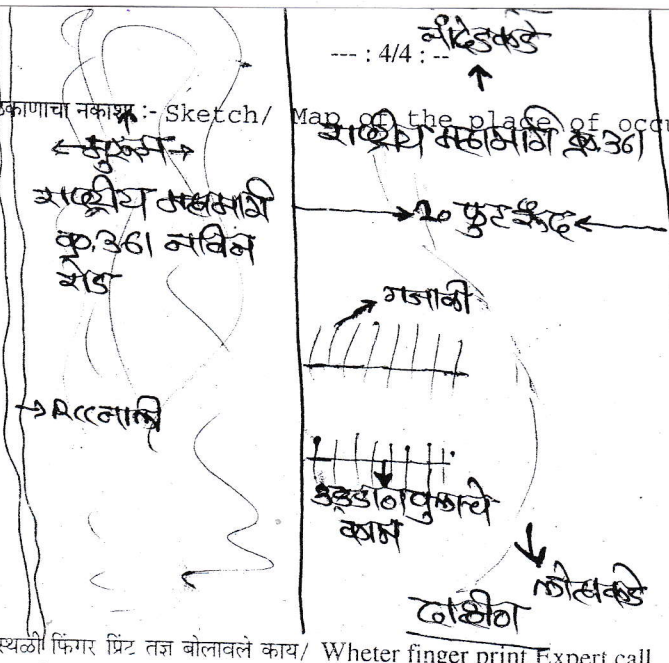 नांदेडकडे
--- : 4/4 : --
काणाचा नकाशा :- Sketch/ Map of the place of occu
मुरूम
राष्ट्रीय महामार्ग क्र. 361
राष्ट्रीय महामार्ग
क्र. 361 नविन
रोड
20 फुट रूंद
गजाळी
RCC नाली
उड्डाणपुलाचे
काम
लोहाकडे
दक्षीण
स्थळी फिंगर प्रिंट तज्ञ बोलावले काय/ Wheter finger print Expert call